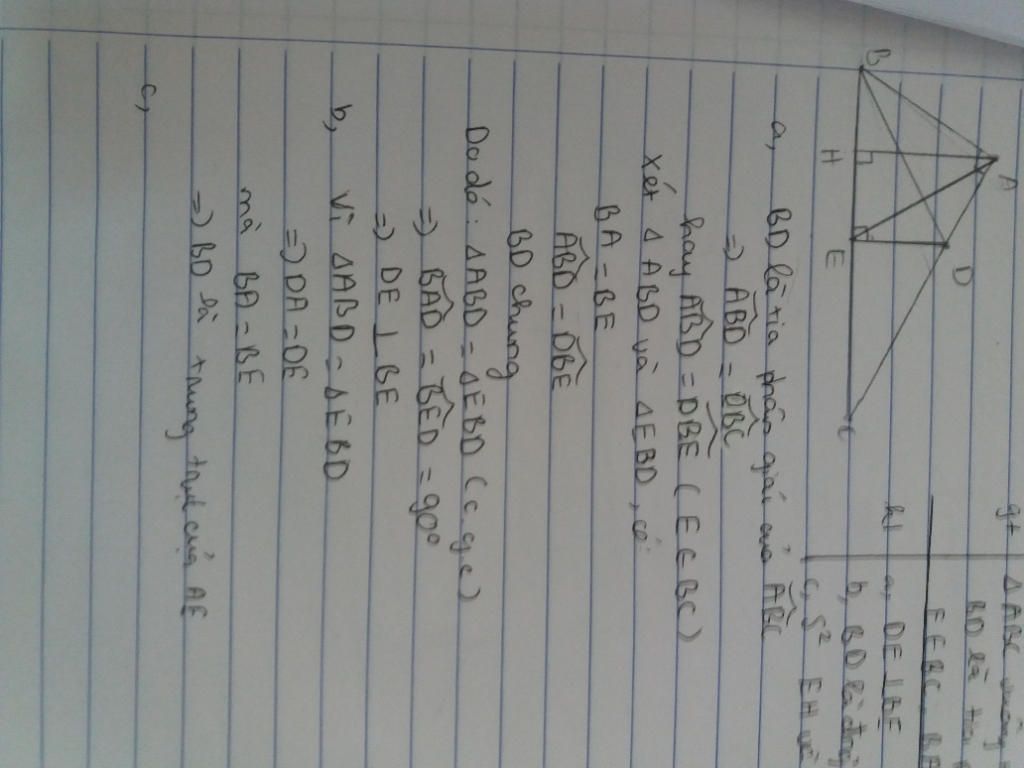 B
A
H
D
E
C
gt
Δ ABC vuông
BD là tia
E ∈ BC, BA
kl
a, DE ⊥ BE
b, BD là
c, S² EH và
a, BD là tia phân giác của ABC
=> ABD = DBC
hay ABD = DBE ( E ∈ BC)
xét Δ ABD và Δ EBD, có:
BA = BE
ABD = DBE
BD chung
Do đó: Δ ABD = Δ EBD ( c g c)
=> BAD = BED = 90°
=> DE ⊥ BE
b, Vì Δ ABD = Δ EBD
=> DA = DE
mà BA = BE
=> BD là trung trực của AE
c,